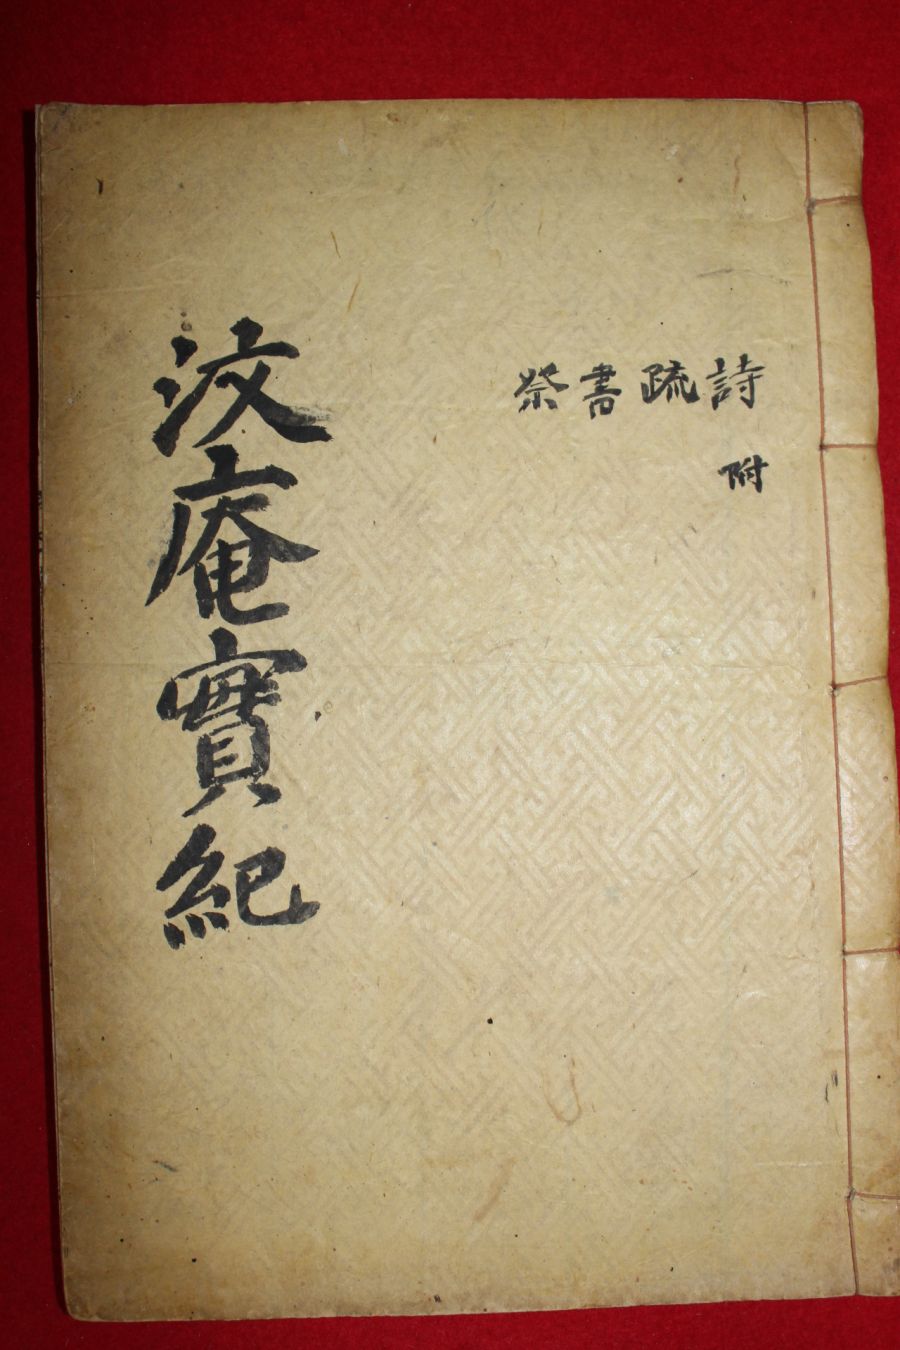 詩疏書祭
附
汶庵實紀